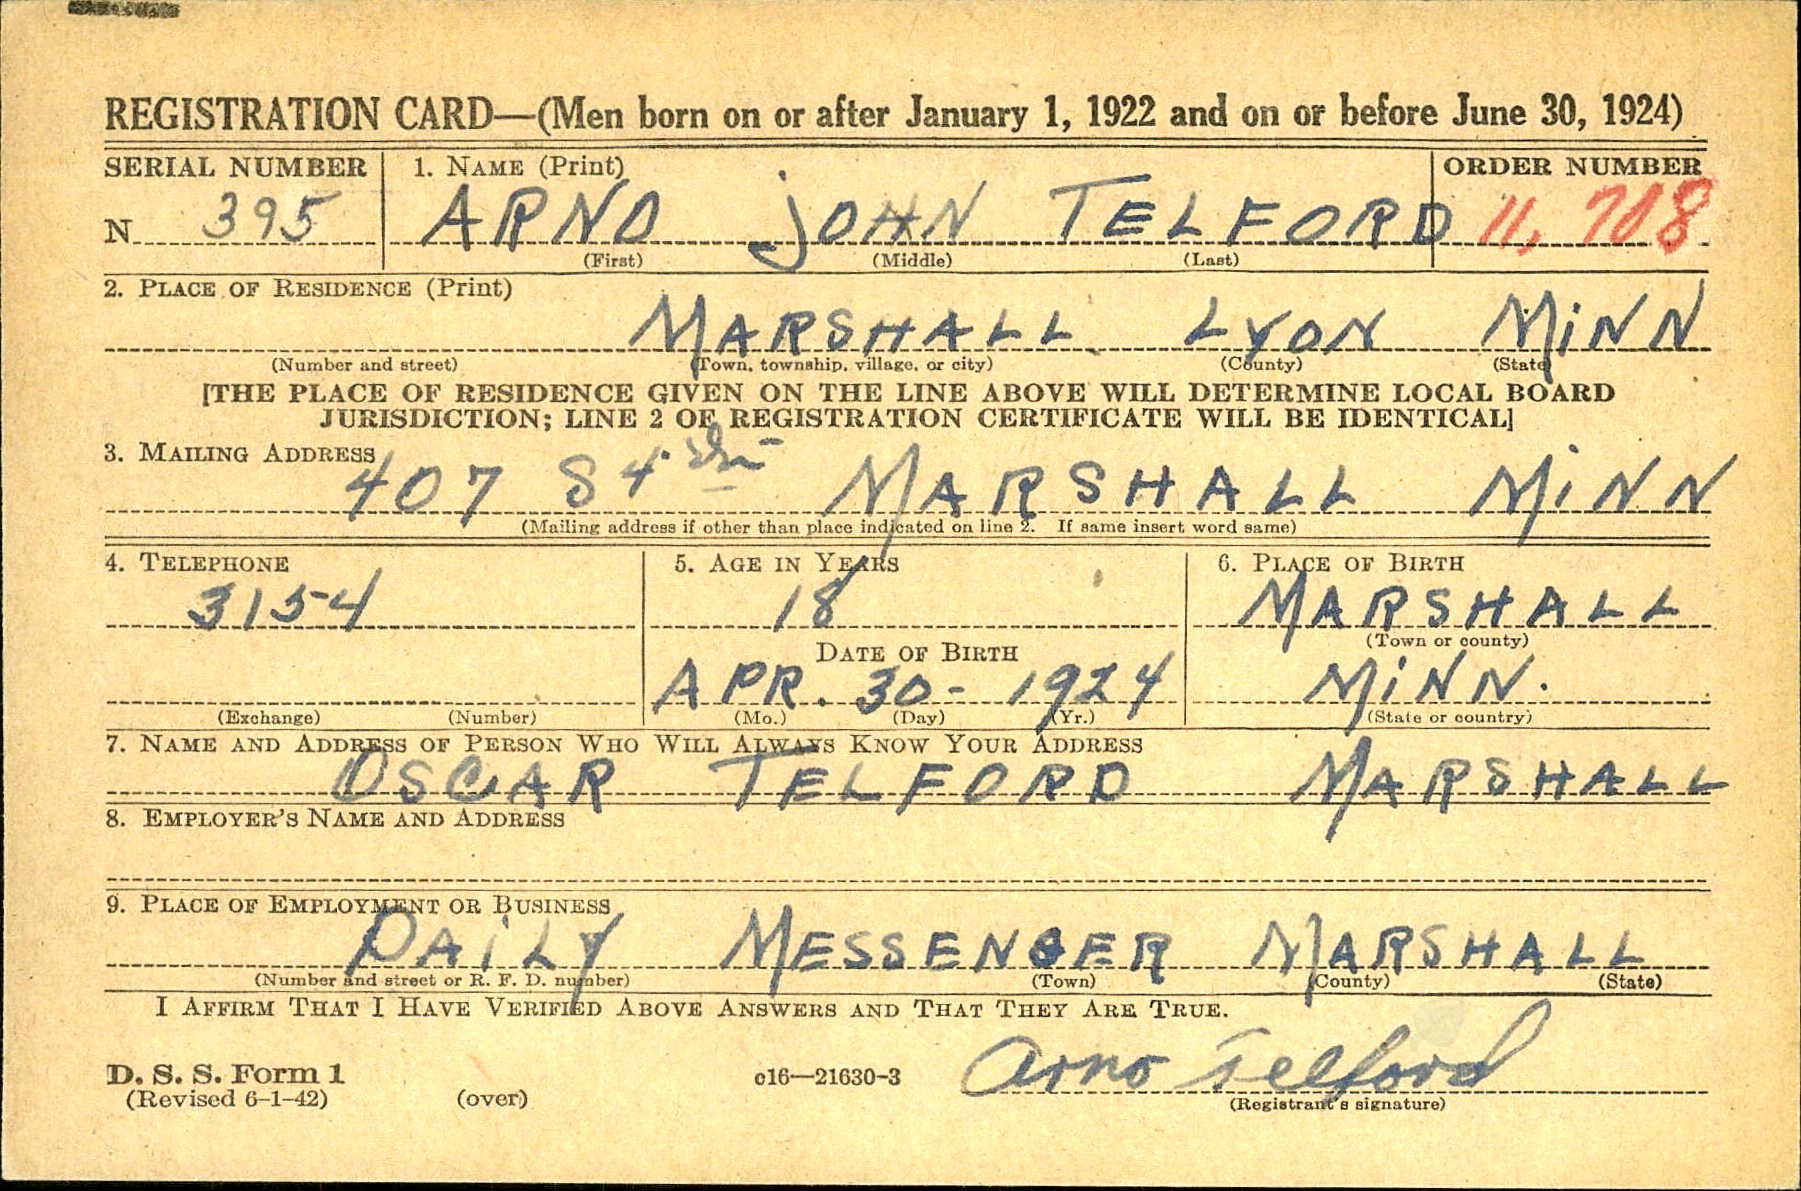 REGISTRATION CARD—(Men born on or after January 1, 1922 and on or before June 30, 1924)
SERIAL NUMBER 1. NAME (Print) ORDER NUMBER
N 395 ARNO JOHN TELFORD 11,708
(First) (Middle) (Last)
2. PLACE OF RESIDENCE (Print)
MARSHALL LYON MINN
(Number and street) (Town, township, village, or city) (County) (State)
[THE PLACE OF RESIDENCE GIVEN ON THE LINE ABOVE WILL DETERMINE LOCAL BOARD
JURISDICTION; LINE 2 OF REGISTRATION CERTIFICATE WILL BE IDENTICAL]
3. MAILING ADDRESS
407 S 4th MARSHALL MINN
(Mailing address if other than place indicated on line 2. If same insert word same)
4. TELEPHONE 5. AGE IN YEARS 6. PLACE OF BIRTH
3154 18 MARSHALL
(Town or county)
DATE OF BIRTH
APR. 30- 1924 MINN.
(Exchange) (Number) (Mo.) (Day) (Yr.) (State or country)
7. NAME AND ADDRESS OF PERSON WHO WILL ALWAYS KNOW YOUR ADDRESS
OSCAR TELFORD MARSHALL
8. EMPLOYER'S NAME AND ADDRESS
9. PLACE OF EMPLOYMENT OR BUSINESS
DAILY MESSENGER MARSHALL
(Number and street or R. F. D. number) (Town) (County) (State)
I AFFIRM THAT I HAVE VERIFIED ABOVE ANSWERS AND THAT THEY ARE TRUE.
D. S. S. Form 1
(Revised 6-1-42) (over) c16—21630-3 Arno Telford
(Registrant's signature)